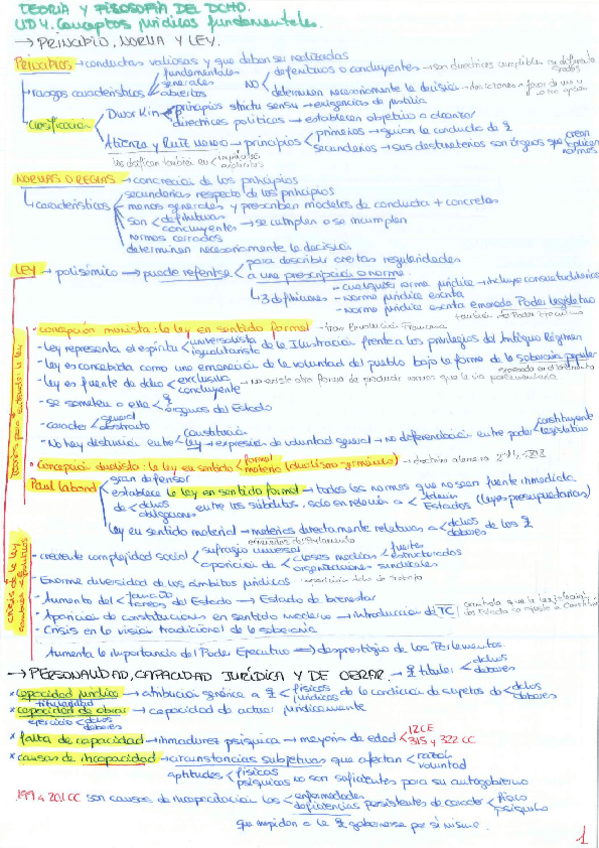 TEORÍA Y FILOSOFÍA DEL DCHO.
UD 4. Conceptos jurídicos fundamentales.
→ PRINCIPIO, NORMA Y LEY.
Principios → conductas valiosas y que deben ser realizadas
fundamentales
↳ rasgos característicos < generales
abiertos
NO < definitivos o concluyentes → son directrices cumplibles en diferentes grados
determinan necesariamente la decisión
Clasificación
Dworkin < principios strictu sensu → exigencias de justicia
directrices políticas → establecen objetivo a alcanzar
Atienza y Ruiz Manero → principios < primarios → guían la conducta de
secundarios → sus destinatarios son órganos que < crean
aplican
normas
Los clasifican también en < explícitos
NORMAS O REGLAS → concreción de los principios
↳ características
secundarias respecto de los principios
menos generales y prescriben modelos de conducta + concretos
son < definitivas
concluyentes → se cumplen o se incumplen
normas cerradas
determinan necesariamente la decisión
LEY → polisémico → puede referirse < para describir ciertas regularidades
a una prescripción o norma
↳ 3 definiciones - cualquier norma jurídica → incluye consuetudinarias
- norma jurídica escrita
- norma jurídica escrita emanada Poder legislativo
también de Poder Ejecutivo
Teorías para entender la ley
- concepción monista: la ley en sentido formal → Revolución Francesa
- Ley representa el espíritu < universalista
igualitarista de la Ilustración frente a los privilegios del Antiguo Régimen
- Ley es concebida como una emanación de la voluntad del pueblo bajo la forma de la soberanía popular
- Ley es fuente de dcho < exclusiva
concluyente → no existe otra forma de producir normas que la vía parlamentaria
- se someten a ella < órganos del Estado
- carácter < general
abstracto
- No hay distinción entre < Constitución
ley → expresión de voluntad general → no diferenciación entre poder < constituyente
legislativo
- Concepción dualista: la ley en sentido < formal
material (dualismo germánico) → doctrina alemana
Paul Laband
gran defensor
establece la ley en sentido formal → todas las normas que no sean fuente inmediata
de < dchos
obligaciones entre los súbditos, solo en relación a < Admin
Estados (leyes presupuestarias)
ley en sentido material → materias directamente relativas a < dchos
deberes de los
crisis de la ley
- creciente complejidad social < sufragio universal
aparición de < clases medias < fuertes
estructuradas
organizaciones sindicales
- Enorme diversidad de los ámbitos jurídicos
- Aumento del < tamaño
tareas del Estado → Estado de bienestar
- Aparición de constituciones en sentido moderno → introducción di TC
- Crisis en la visión tradicional de la soberanía
Aumenta la importancia del Poder Ejecutivo → desprestigio de los Parlamentos.
→ PERSONALIDAD, CAPACIDAD JURÍDICA Y DE OBRAR. → titular < dchos
deberes
* capacidad jurídica → atribución genérica a < físicas
jurídicas de la condición de sujetos de < dchos
deberes
titularidad
* capacidad de obrar → capacidad de actuar jurídicamente
ejercicio < dchos
deberes
* falta de capacidad → inmadurez psíquica → mayoría de edad < 12 CE
315 y 322 CC
* causas de incapacidad → circunstancias subjetivas que afectan < razón
voluntad
aptitudes < físicas
psíquicas no son suficientes para su autogobierno
199 a 201 CC son causas de incapacitación las < enfermedades
deficiencias persistentes de carácter < físico
psíquico
que impiden a la gobernarse por sí misma.
1